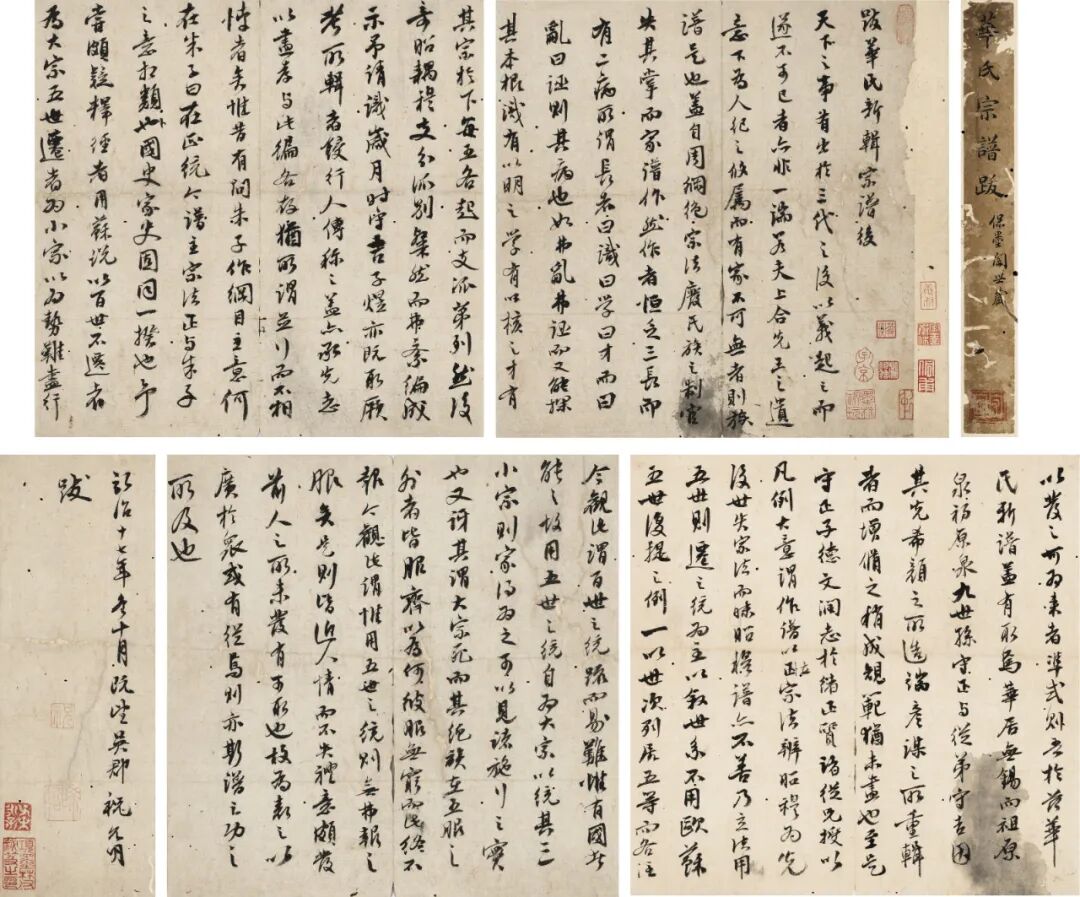 華氏宗譜跋
閣世藏
跋華氏新輯宗譜後
天下之事有出於三代之後以義起之而
遂不可已者亦非一端若夫上合先王之遺
意下為人紀之攸屬而有家不可無者則族
譜是也蓋自周綱絕宗法廢氏族之制官
失其掌而家譜作然作者恒乏三長而
有二病所謂長者曰識曰學曰才而曰
亂曰誣則其病也如弗亂弗誣而又能探
其本根識有以明之學有以核之才有
以發之可為來者準式則吾於茲華
氏新譜蓋有取焉華居無錫而祖原
泉初原泉九世孫守正與從弟守吉因
其先希顏之所造端彥謀之所重輯
者而增脩之稍成規範猶未盡也至是
守正子德文濶志於緒正質諸從兄授以
凡例大意謂作譜以正宗法辨昭穆為先
後世失宗法而昧昭穆譜亦不善乃立法用
五世則遷之統為主以敘世系不用歐蘇
五世復提之例一以世次列居五等而各注
其宗於下每五各起而支派第列然後
奇昭耦穆支分派別粲然而弗紊編成
示予請識歲月時守吉子煜亦既取厥
考所輯者鋟行人傳稱之蓋亦承先志
以盡孝與此編各存猶所謂並行而不相
悖者矣惟昔有問朱子作綱目主意何
在朱子曰在正統今譜主宗法正與朱子
之意相類也國史家史固同一揆也予
嘗頗疑釋經者用蘇說以百世不遷者
為大宗五世遷者為小宗以為勢難盡行
今觀此謂百世之統疏而易難惟有國者
能之故用五世之統自為大宗以統其三
小宗則家得為之可以見諸施行之實
也又訝其謂大宗死而其絕族在五服之
外者皆服齊以為何彼服無窮而此終不
報今觀此謂惟用五世之統則無弗報之
服矣是則皆近人情而不失禮意頗發
前人之所未發有可取也故為表之以
廣於眾或有從焉則亦斯譜之功之
所及也
弘治十七年冬十月既望吳郡祝允明
跋